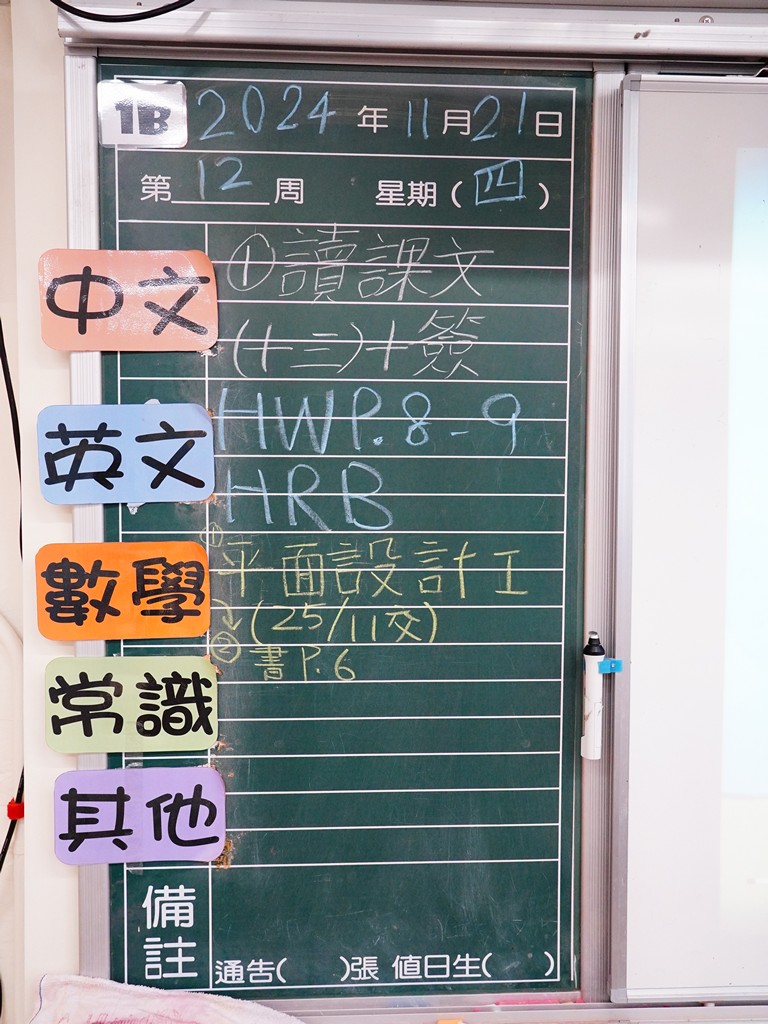 1B 2024 年 11 月 21 日
第 12 周 星期 ( 四 )
中文 ①讀課文
(十三)+簽
英文 HWP.8-9
HRB
數學 ① 平面設計工
↳ (25/11交)
② 書P.6
常識
其他
備註 通告( )張 值日生( )